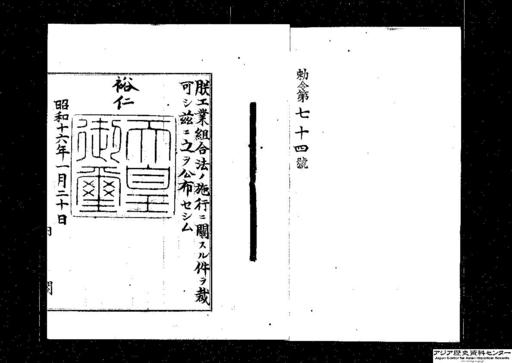 勅令第七十四號
朕工業組合法ノ施行ニ關スル件ヲ裁
可シ茲ニ之ヲ公布セシム
裕仁
天皇
御璽
昭和十六年一月二十日
アジア歴史資料センター
Japan Center for Asian Historical Records